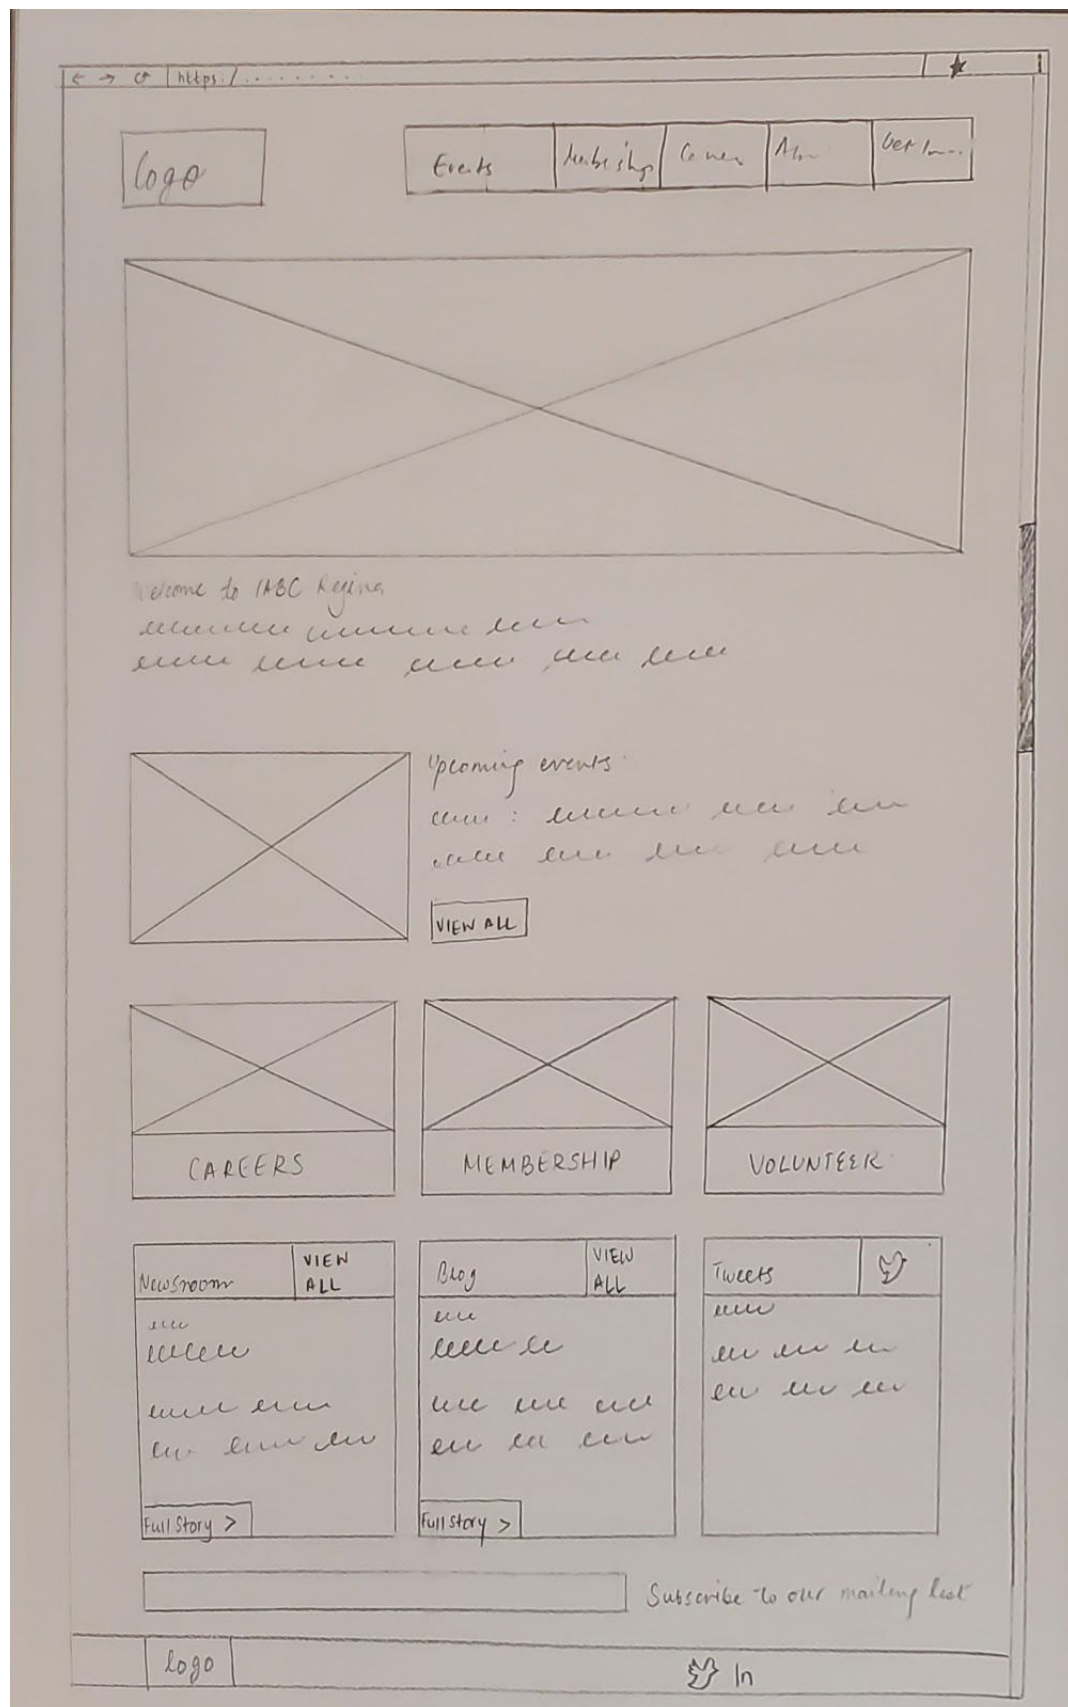 https:/.........
logo
Events
Membership
Welcome to IABC Regina
Upcoming events
VIEW ALL
CAREERS
MEMBERSHIP
VOLUNTEER
Newsroom
VIEW
ALL
Full Story >
Blog
VIEW
ALL
Full Story >
Tweets
Subscribe to our mailing list
logo
In